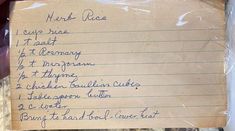 Herb Rice
1 cup rice
1 t salt
½ t Rosemary
½ t Marjoram
½ t thyme
2 chicken boullion cubes
1 Tablespoon butter
2 c water
Bring to hard boil - lower heat